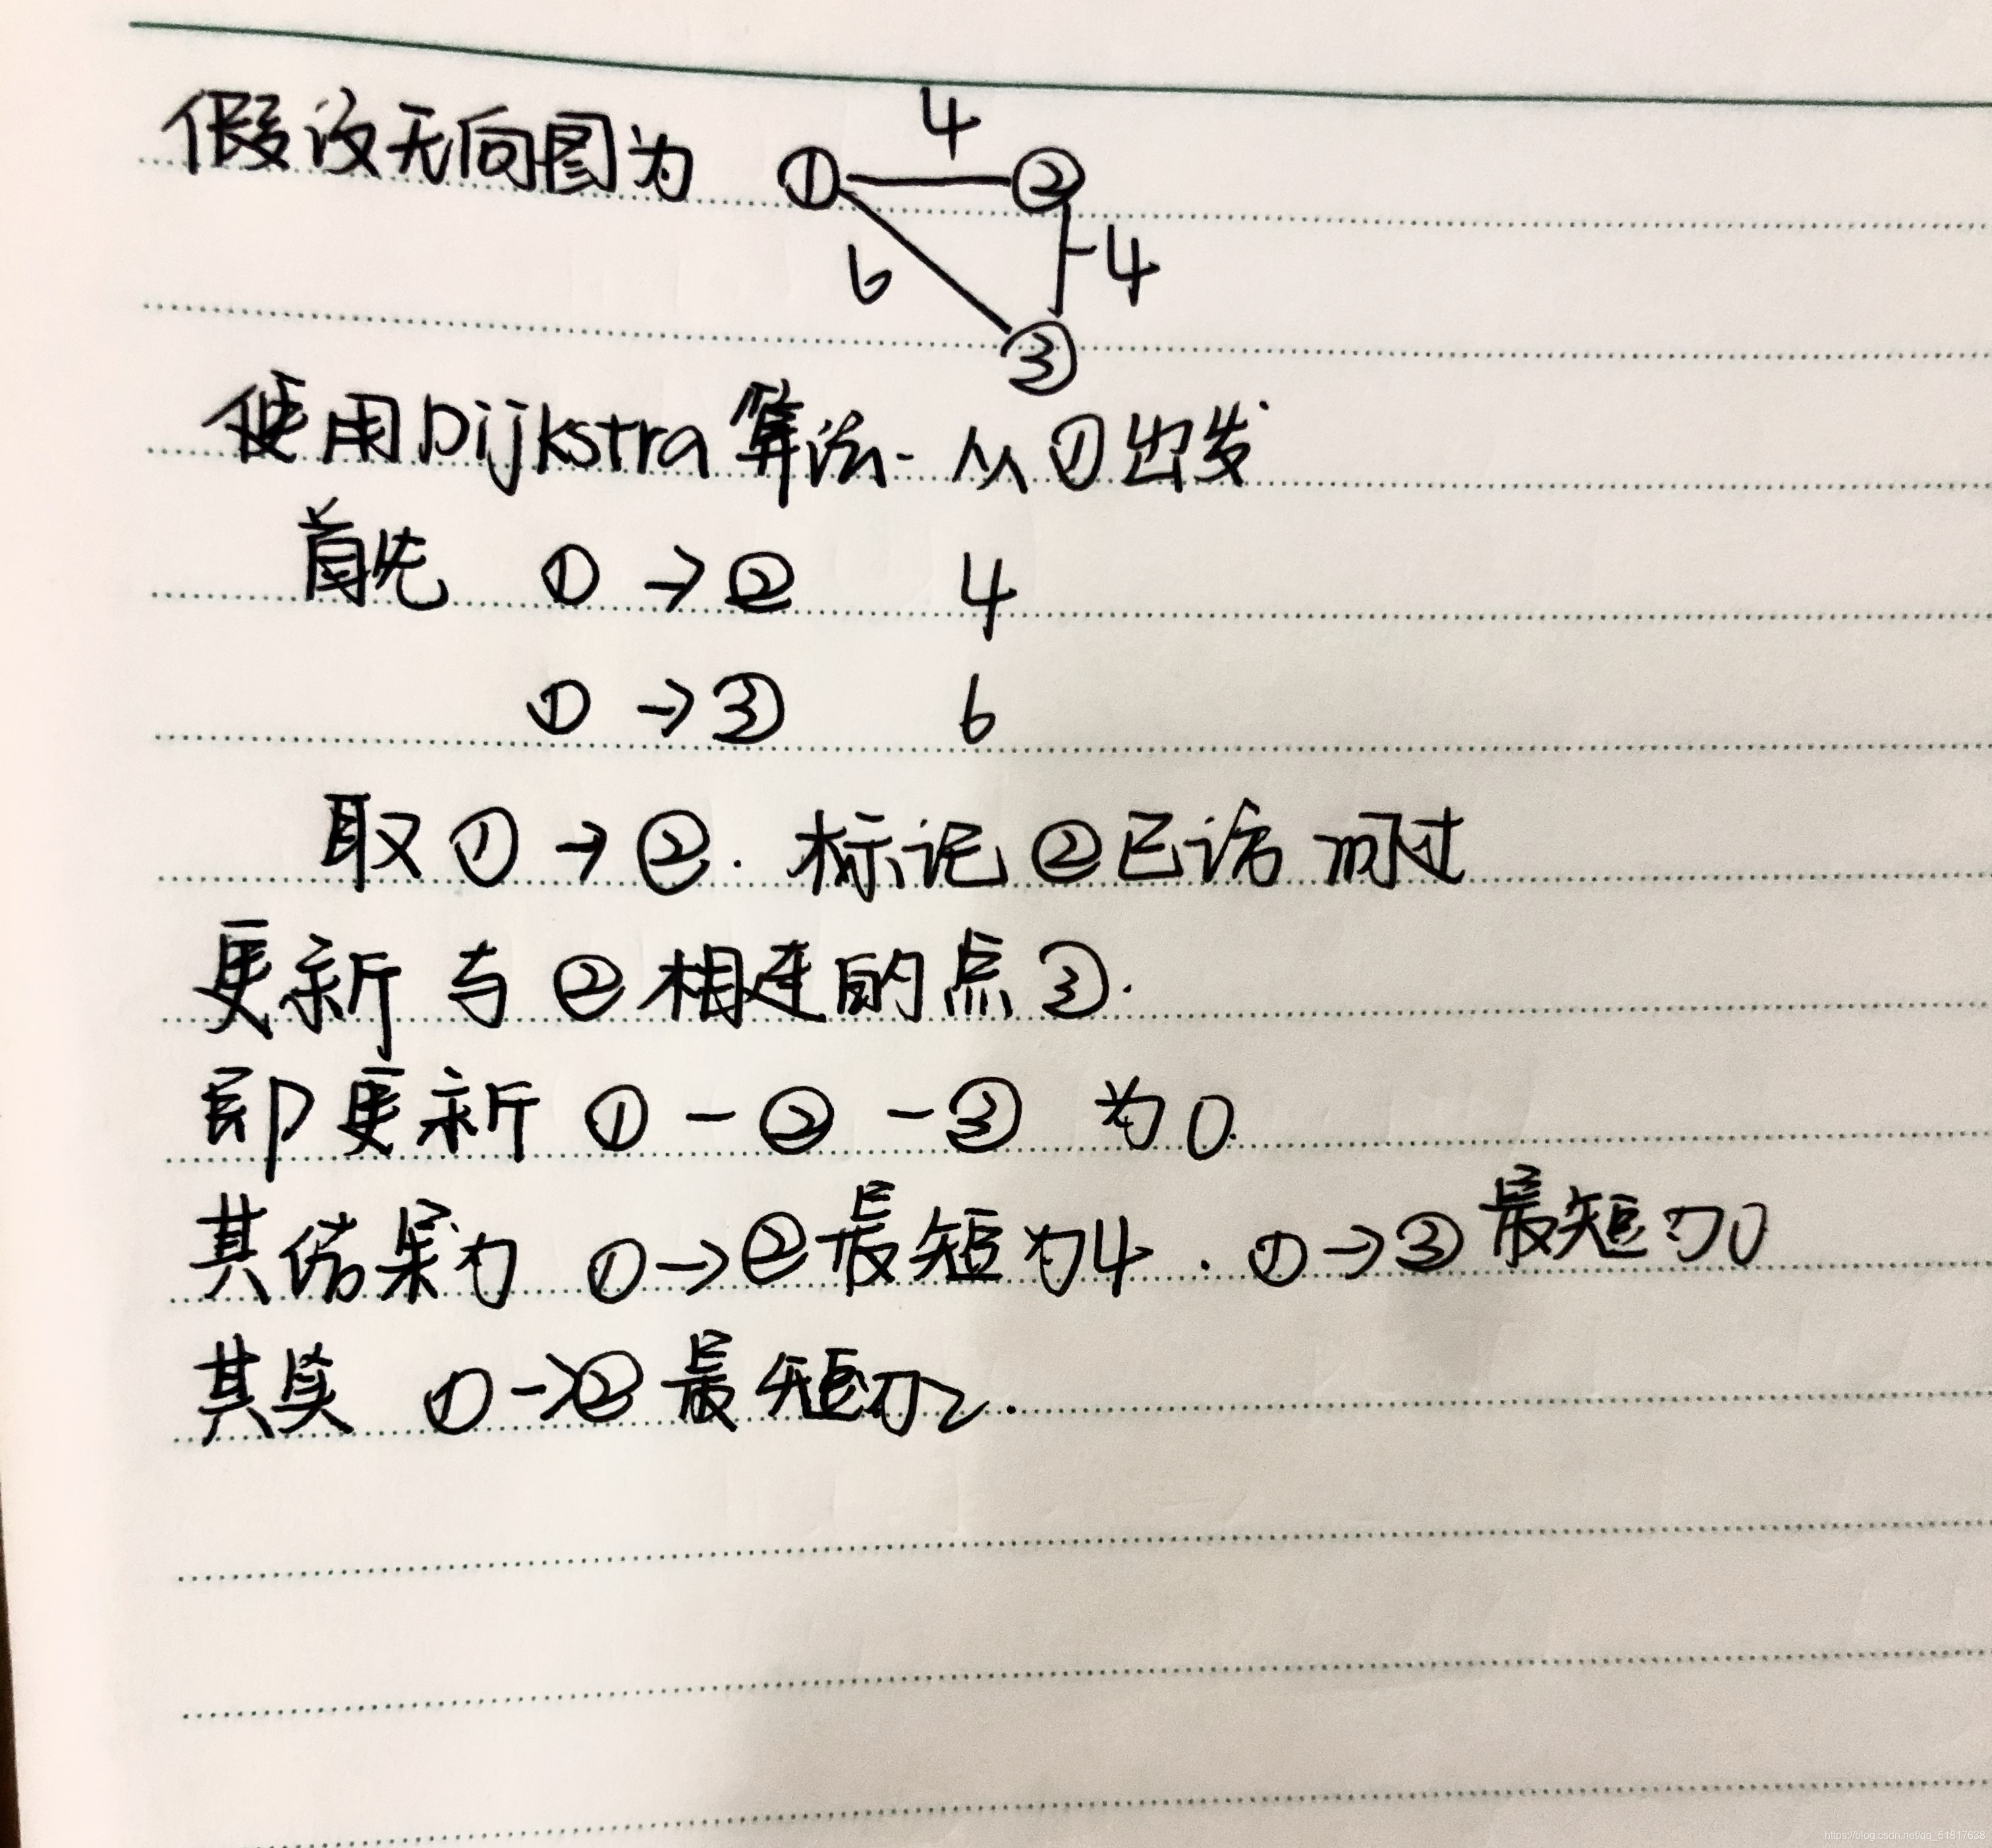 假设无向图为 ① 4 ②
6 -4
③
使用Dijkstra算法. 从①出发
首先 ① → ② 4
① → ③ 6
取①→②. 标记②已访问过
更新与②相连的点③.
即更新 ① - ② - ③ 为0.
其结果为 ①→②最短为4. ①→③最短为0
其实 ①→② 最短为2.
https://blog.csdn.net/qq_51817638